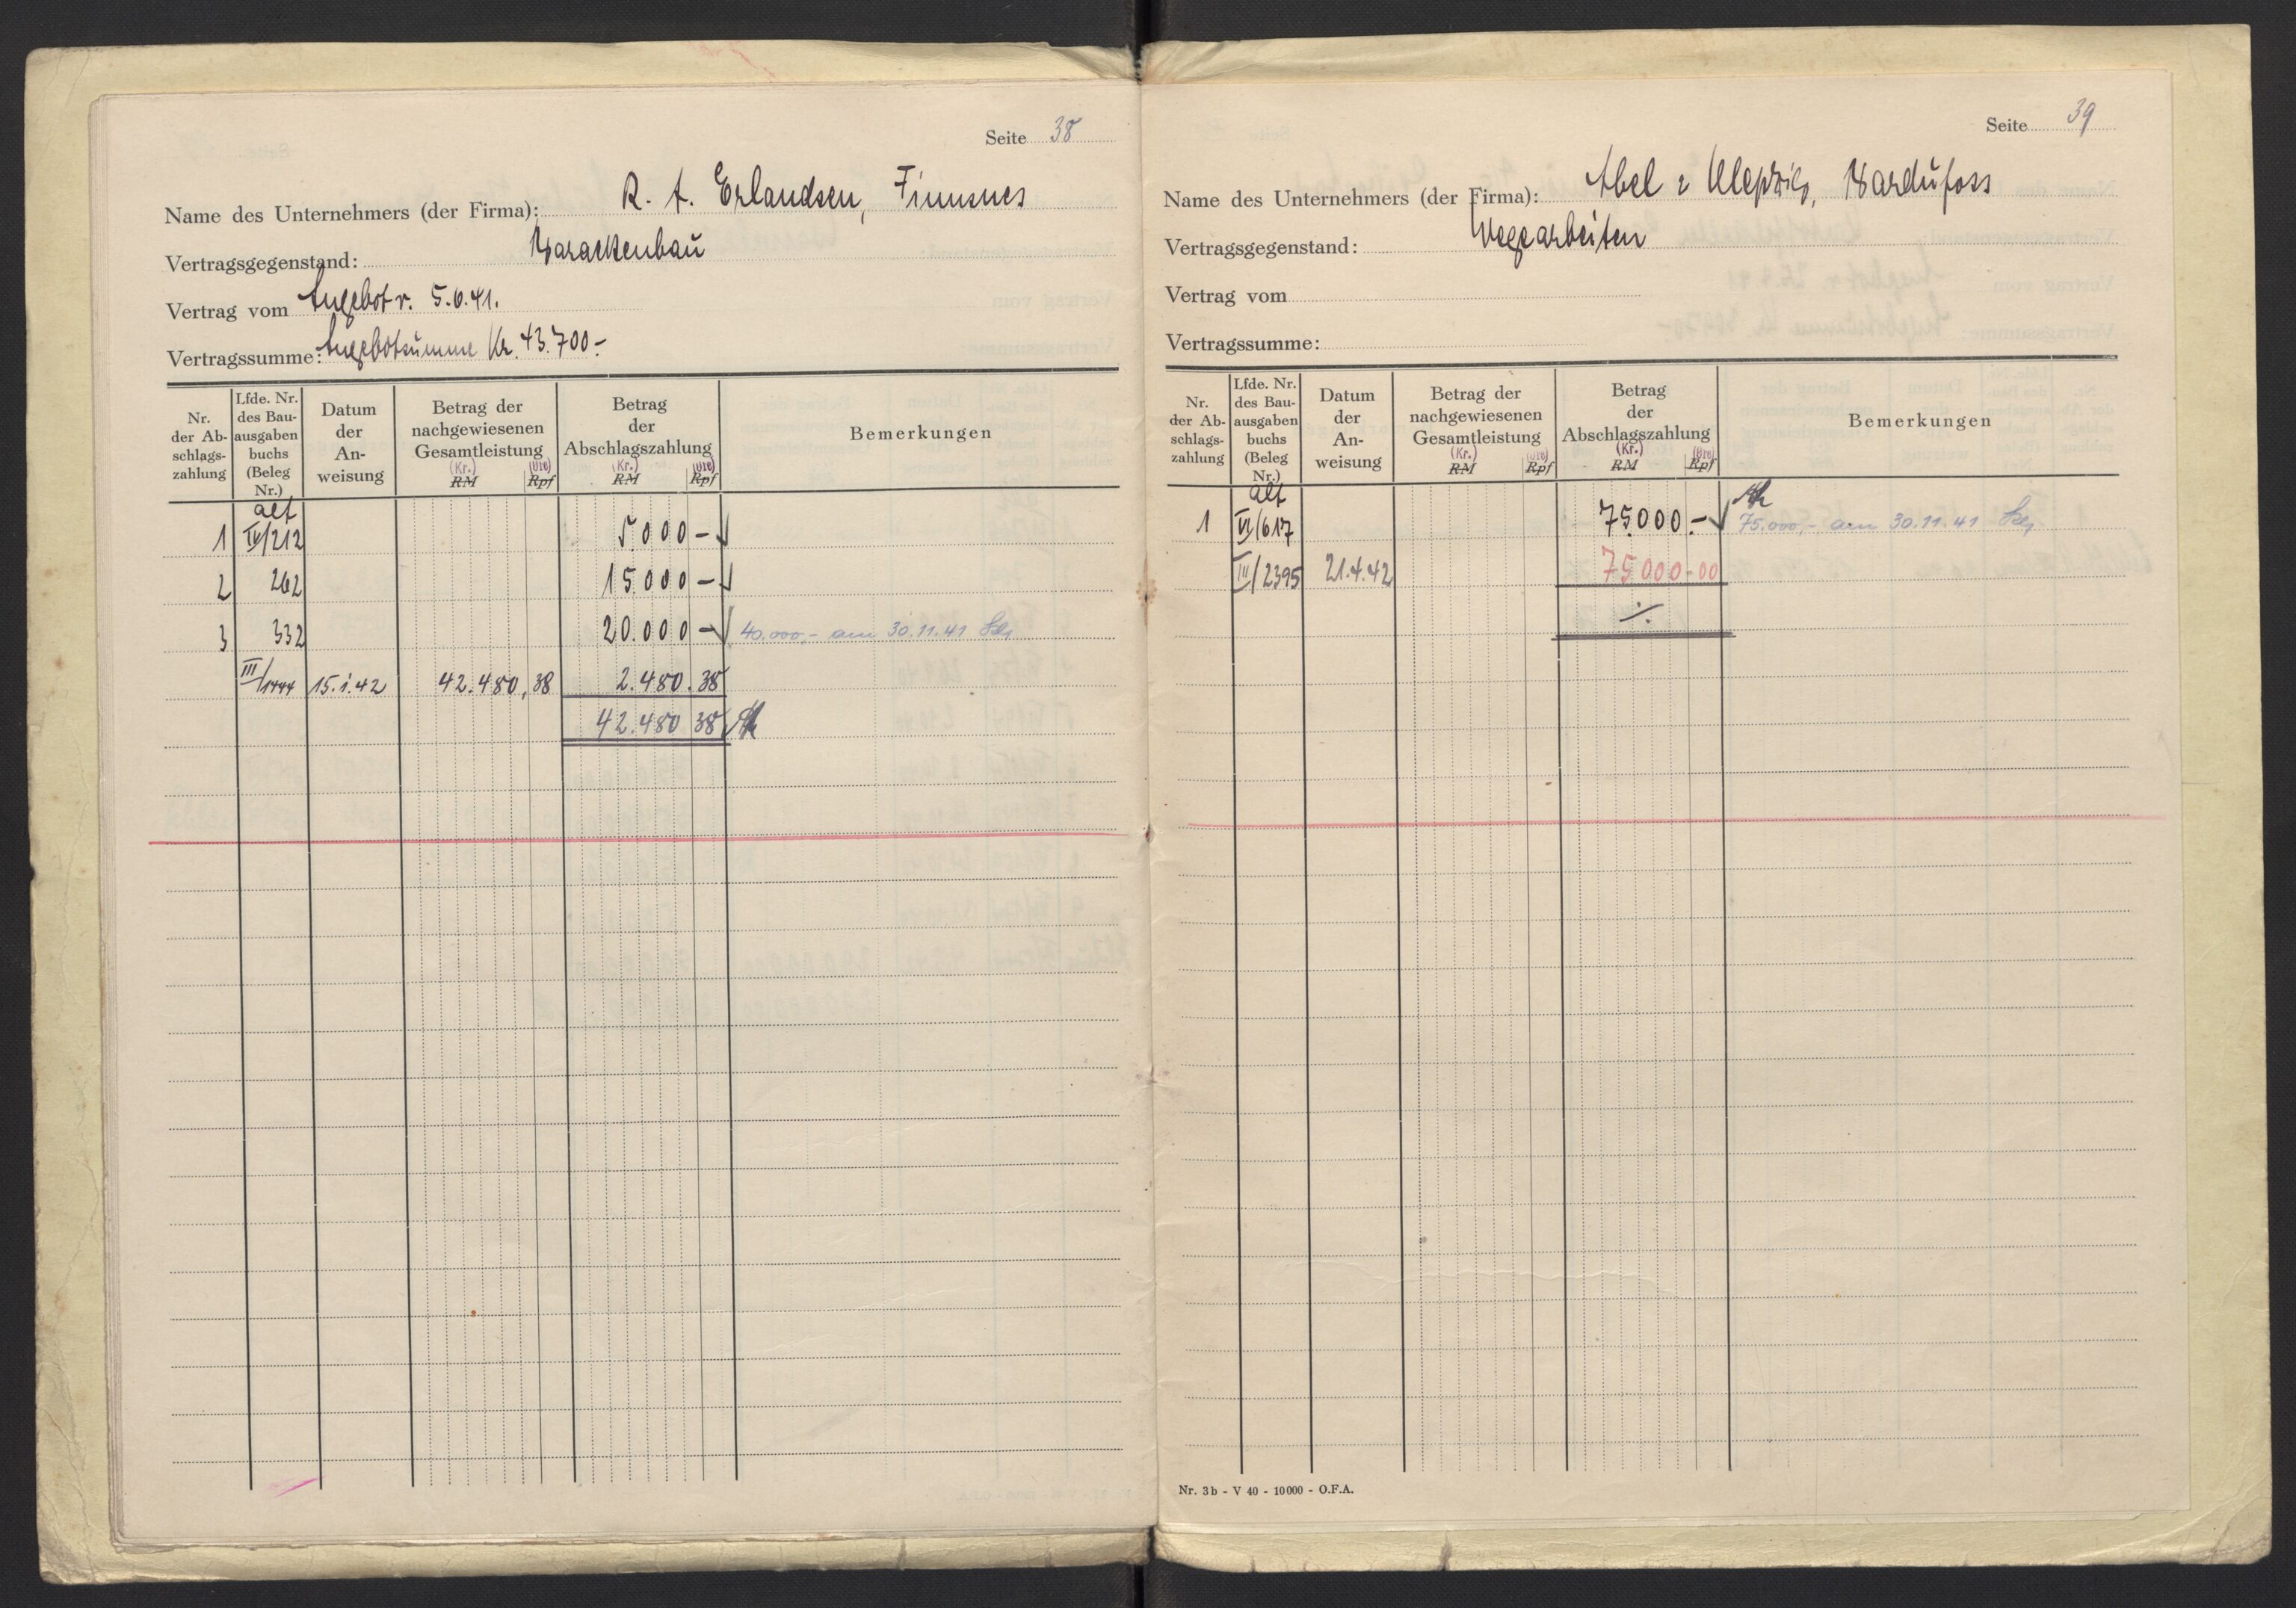 Seite 38
Name des Unternehmers (der Firma): R. A. Erlandsen, Finnsnes
Vertragsgegenstand: Barackenbau
Vertrag vom Angebot v. 5.6.41.
Vertragssumme: Angebotsumme Kr. 43.700.-
Nr. der Ab-schlags-zahlung | Lfde. Nr. des Bau-ausgaben buchs (Beleg Nr.) | Datum der An-weisung | Betrag der nachgewiesenen Gesamtleistung (Kr.) RM (Öre) Rpf | Betrag der Abschlagszahlung (Kr.) RM (Öre) Rpf | Bemerkungen
alt
1 IV/212 5.000 -
2 262 15.000 -
3 332 20.000 - 40.000,- am 30.11.41
III/1444 15.1.42 42.480,38 2.480.38
42.480 38
Seite 39
Name des Unternehmers (der Firma): Abel & Bardufoss
Vertragsgegenstand: Wegearbeiten
Vertrag vom
Vertragssumme:
Nr. der Ab-schlags-zahlung | Lfde. Nr. des Bau-ausgaben buchs (Beleg Nr.) | Datum der An-weisung | Betrag der nachgewiesenen Gesamtleistung (Kr.) RM (Öre) Rpf | Betrag der Abschlagszahlung (Kr.) RM (Öre) Rpf | Bemerkungen
alt
1 VI/617 75.000.- 75.000,- am 30.11.41
III/2395 21.4.42 75 000-00
./.
Nr. 3b - V 40 - 10000 - O.F.A.